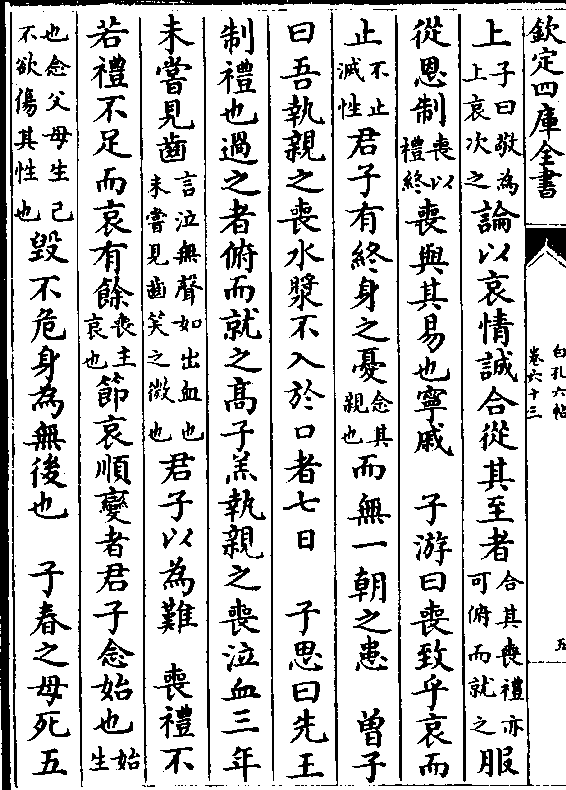 欽定四庫全書
白孔六帖
卷六十三
五
上子曰敬為上哀次之論以哀情誠合從其至者合其喪禮亦可俯而就之服
從恩制喪以禮終喪與其易也寧戚 子游曰喪致乎哀而
止不止滅性君子有終身之憂念其親也而無一朝之患 曾子
曰吾執親之喪水漿不入於口者七日 子思曰先王
制禮也過之者俯而就之高子羔執親之喪泣血三年
未嘗見齒言泣無聲如出血也未嘗見齒笑之微也君子以為難 喪禮不
若禮不足而哀有餘喪主哀也節哀順變者君子念始也始生
也念父母生己不欲傷其性也毀不危身為無後也 子春之母死五